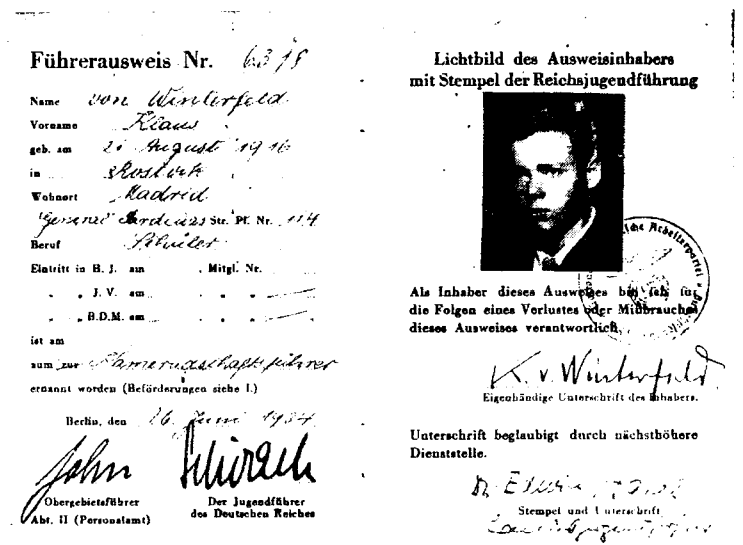 Führerausweis Nr. 6318
Name von Winterfeld
Vorname Klaus
geb. am 21 August 1916
in Rostock
Wohnort Madrid
General Str. Pf. Nr. 114
Beruf Schüler
Eintritt in B. J. am Mitgl. Nr.
" " J. V. am " "
" " B.D.M. am " "
ist am
zum zur Kameradschaftsführer
ernannt worden (Beförderungen siehe I.)
Berlin, den 26. Juni 1934
John Schirach
Obergebietsführer
Abt. II (Personalamt)
Der Jugendführer
des Deutschen Reiches
Lichtbild des Ausweisinhabers
mit Stempel der Reichsjugendführung
Arbeiterpartei
Als Inhaber dieses Ausweises bin ich für
die Folgen eines Verlustes oder Mißbrauches
dieses Ausweises verantwortlich.
K. v. Winterfeld
Eigenhändige Unterschrift des Inhabers.
Unterschrift beglaubigt durch nächsthöhere
Dienststelle.
Dr. Edwin
Stempel und Unterschrift